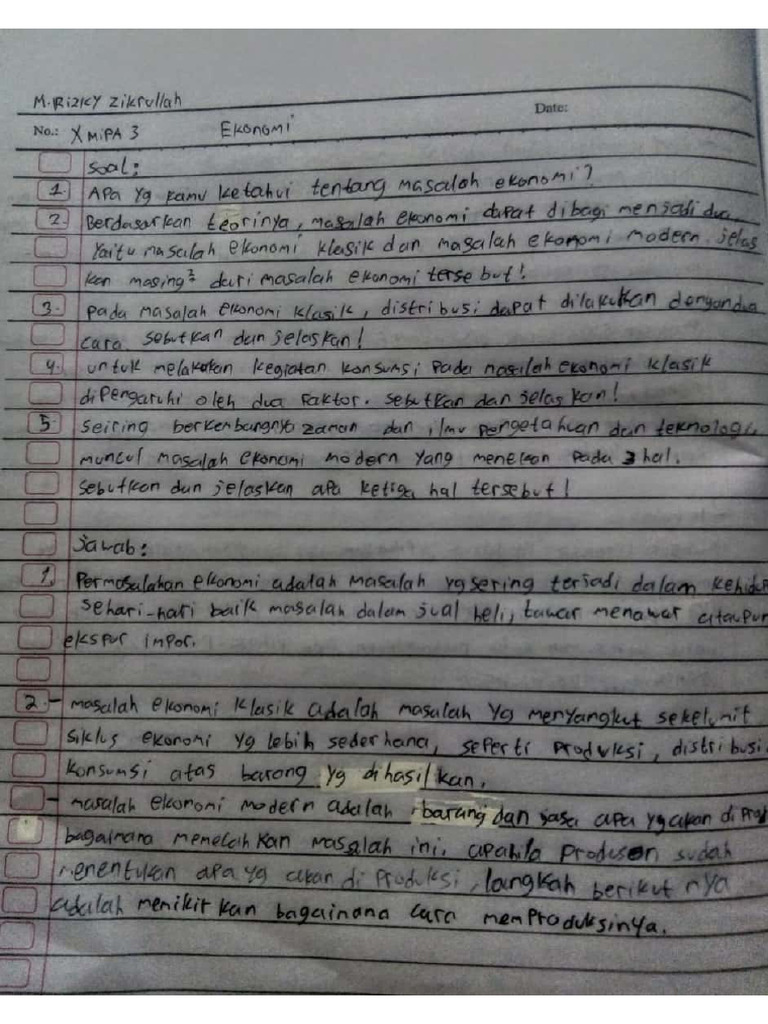 M. Rizky Zikrullah
Date:
No.: X MiPA 3 Ekonomi
Soal:
1. Apa yg kamu ketahui tentang masalah ekonomi?
2. Berdasarkan teorinya, masalah ekonomi dapat dibagi menjadi dua
Yaitu masalah ekonomi klasik dan masalah ekonomi modern. jelas
kan masing² dari masalah ekonomi tersebut!
3. pada masalah ekonomi klasik, distribusi dapat dilakukan dengan dua
cara sebutkan dan jelaskan!
4. untuk melakukan kegiatan konsumsi pada masalah ekonomi klasik
dipengaruhi oleh dua faktor. sebutkan dan jelaskan!
5. seiring berkembangnya zaman dan ilmu pengetahuan dan teknologi,
muncul masalah ekonomi modern yang menekan pada 3 hal.
sebutkan dan jelaskan apa ketiga hal tersebut!
jawab:
1. Permasalahan ekonomi adalah masalah yg sering terjadi dalam kehidup
sehari-hari baik masalah dalam jual beli, tawar menawar ataupun
ekspor impor.
2. - masalah ekonomi klasik adalah masalah yg menyangkut
siklus ekonomi yg lebih sederhana, seperti produksi, distribusi,
konsumsi atas barang yg dihasilkan.
- masalah ekonomi modern adalah barang dan jasa apa yg akan di prod
bagaimana memecahkan masalah ini. apabila produsen sudah
menentukan apa yg akan di produksi, langkah berikut nya
adalah memikirkan bagaimana cara memproduksinya.